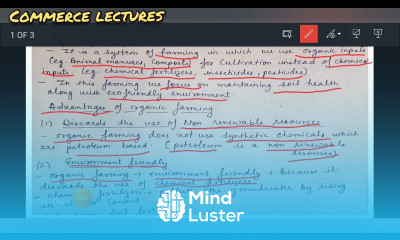 COMMERCE LECTURES
1 OF 3
- It is a system of farming in which we use organic inputs
(eg. Animal manures, Composts) for cultivation instead of chemical
inputs (eg. chemical fertilizers, insecticides, pesticides)
- In this farming we focus on maintaining soil health
along with eco friendly environment.
Advantages of organic farming
(1) Discards the use of Non Renewable resources
- organic farming does not use synthetic chemicals which
are petroleum based. (petroleum is a non renewable
resources)
(2) Environment friendly
- organic farming → environment friendly → because it
discards the use of chemical fertilizers
- chemical fertilizers → the groundwater by rising
its content
Mind
Luster